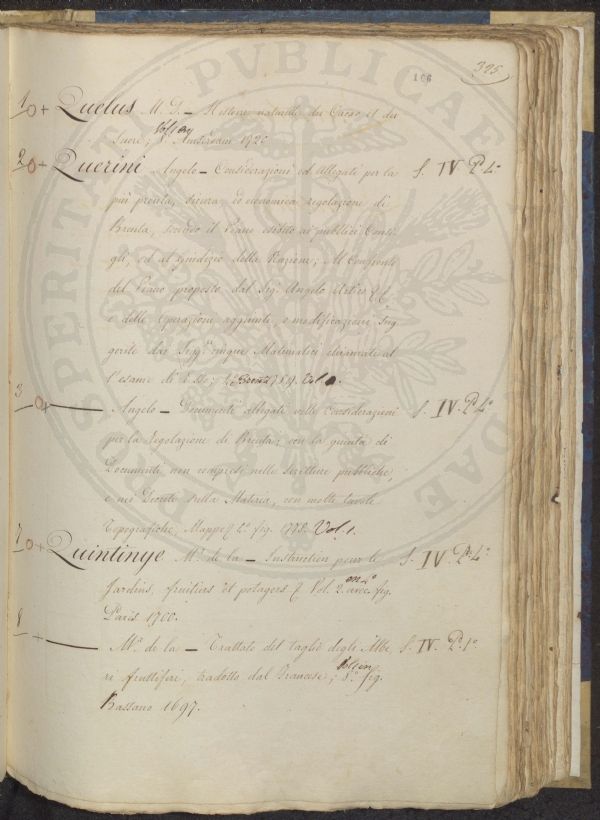 PROSPERITATI PVBLICAE
325
166
1 0+ Quelus M. D. — Histoire naturelle du Cacao, et du
Sucre; 8° Amsterdam 1720
2 0+ Querini Angelo — Considerazioni ed Allegati per la S. IV P° 4°
più pronta, sicura ed economica regolazione di
Brenta, secondo il Piano esibito ai pubblici Consi
gli, ed al giudizio della Nazione; Al Confronto
del Piano proposto dal Sig. Angelo Artico
e delle Operazioni aggiunte, e modificazioni Sug
gerite dai Sigg.ri cinque Matematici chiamati al
l'esame di Esso; 1789. Vol.
3 0+ — Angelo — Documenti allegati nelle Considerazioni S. IV. P° 4°
per la regolazione di Brenta; con la giunta di
Documenti non compresi nelle Scritture pubbliche,
e nei Decreti sulla Materia, con molte tavole
Topografiche, Mappe fig. Vol. 1.
7 0+ Quintinye Mr. de la — Instruction pour le S. IV. P° 4°
Jardins, fruitiers et potagers Vol. 2. en 4° avec fig.
Paris 1700.
8 + — Mr. de la — Trattato del taglio degli Albe S. IV. P° 1°
ri fruttiferi, tradotto dal Francese; 8° fig.
Bassano 1697.